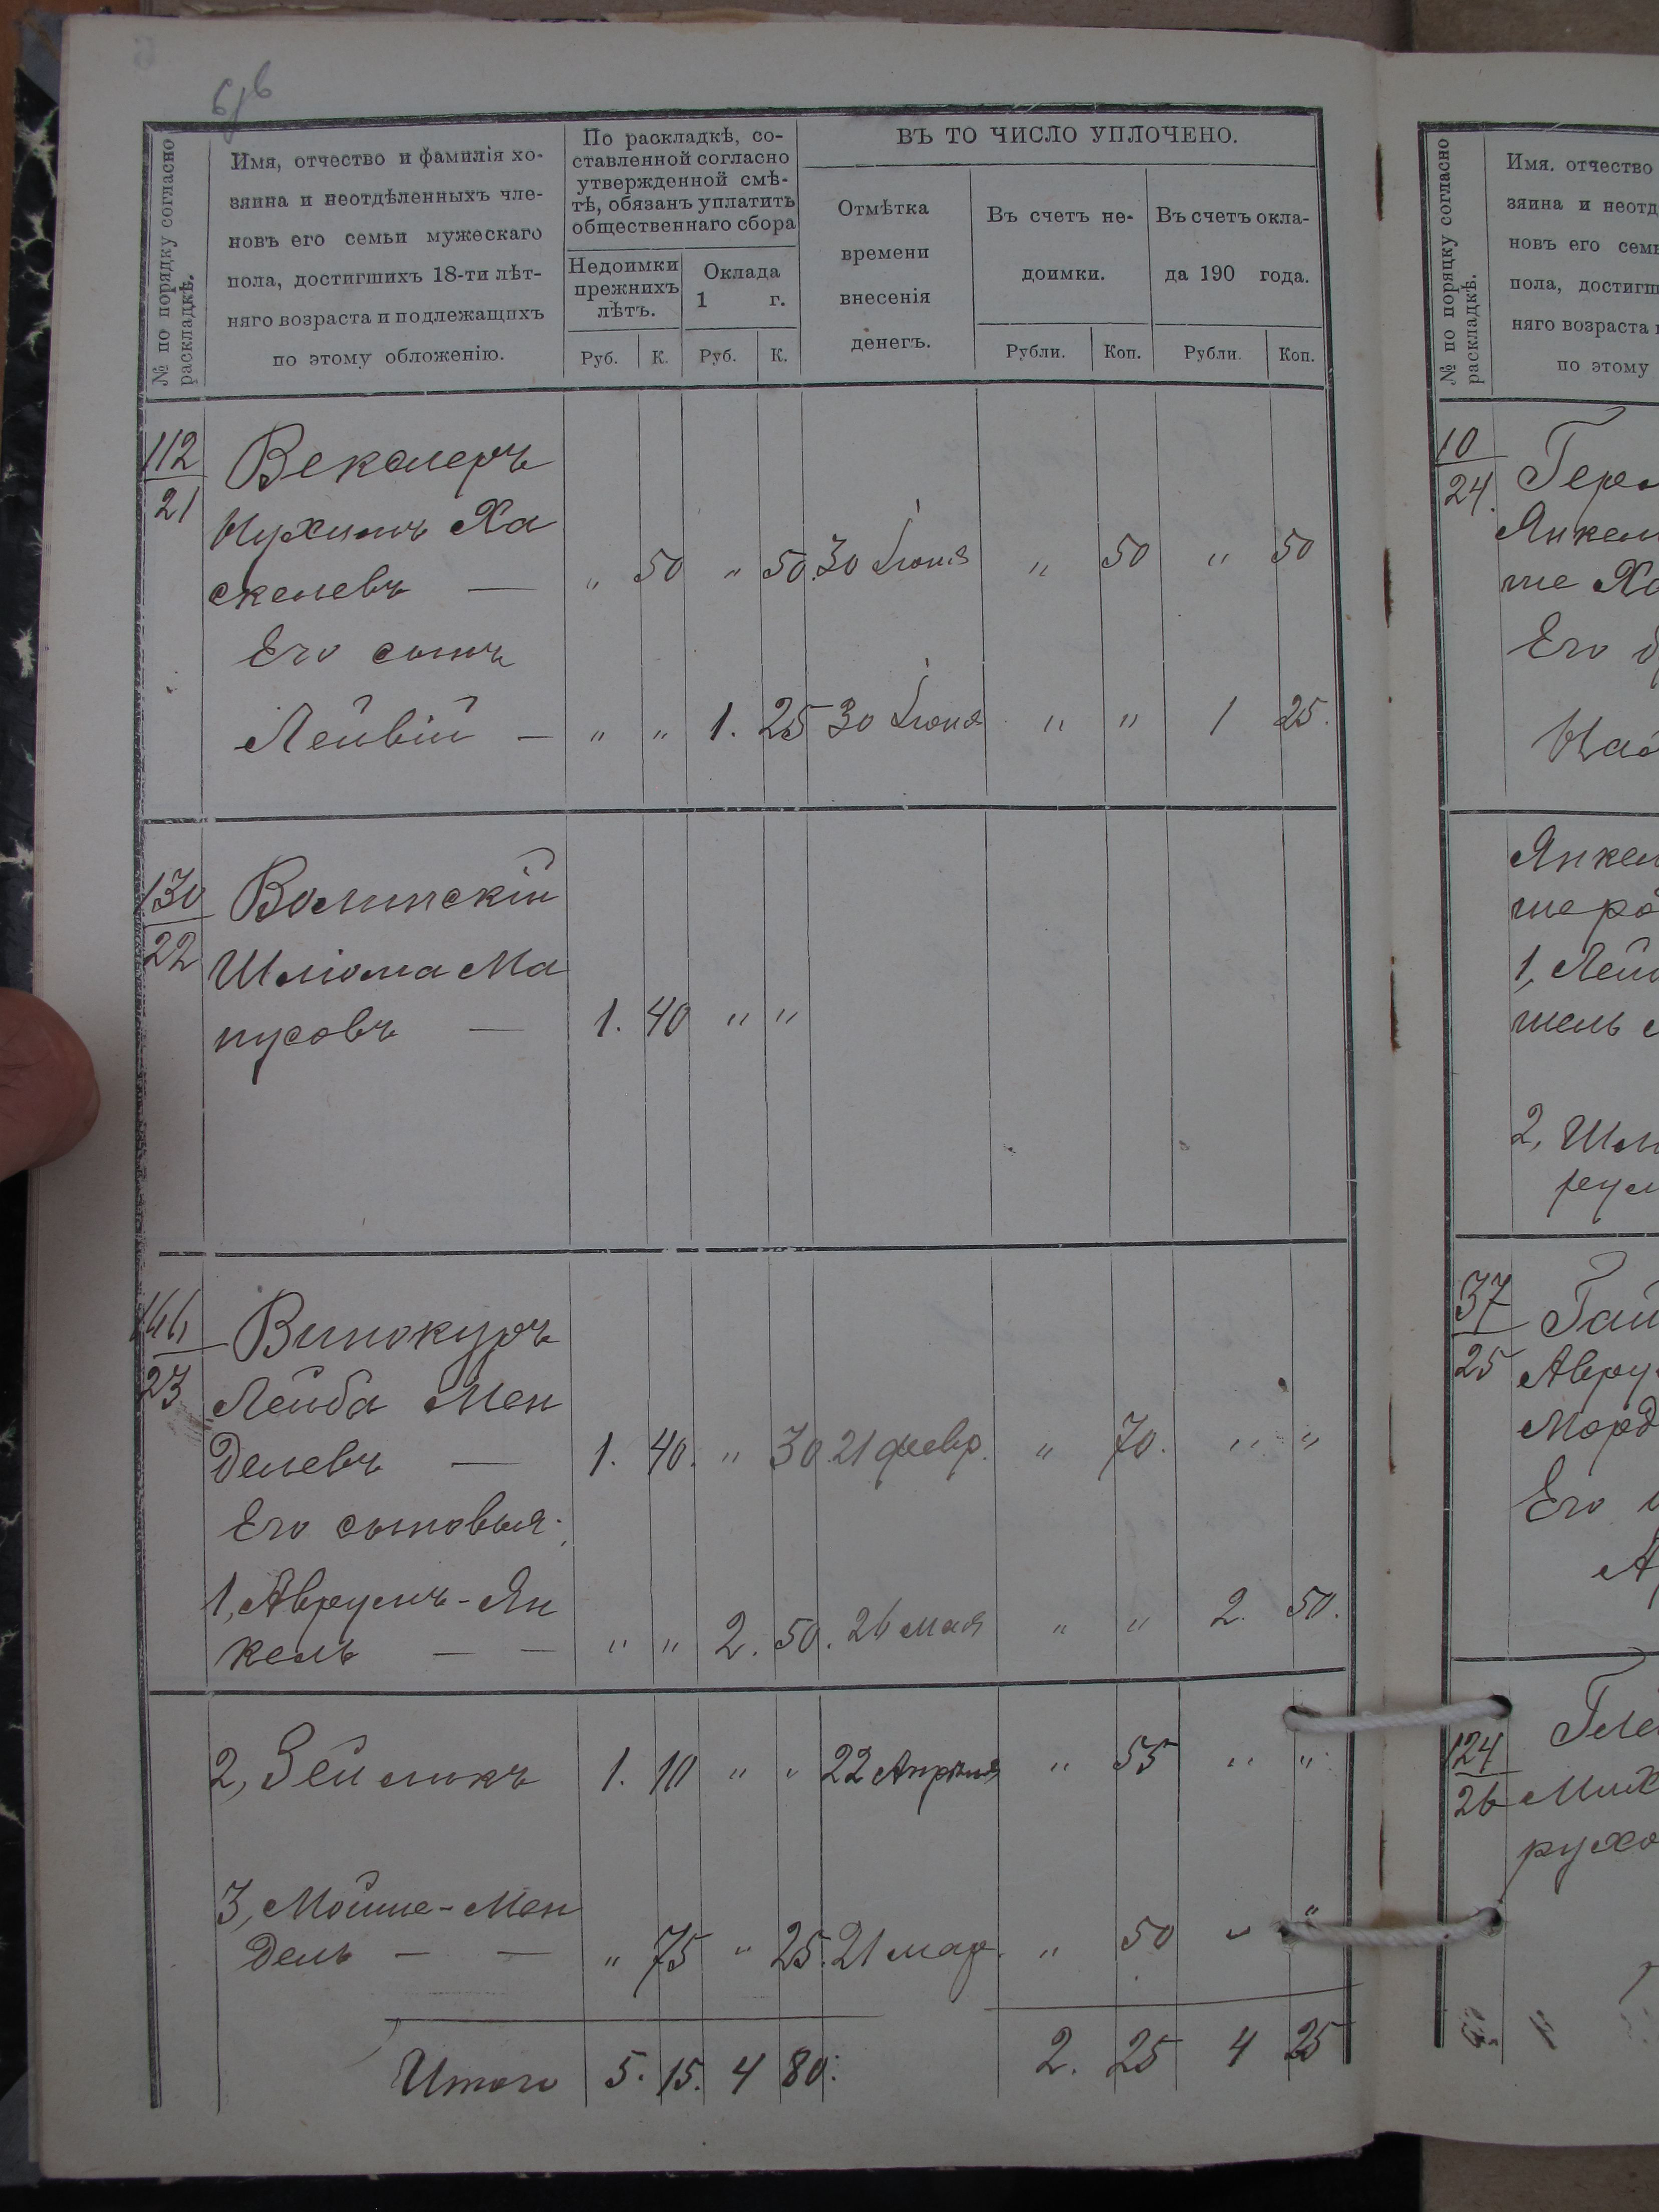 № по порядку согласно раскладкѣ.
Имя, отчество и фамилія хо-
зяина и неотдѣленныхъ чле-
новъ его семьи мужескаго
пола, достигшихъ 18-ти лѣт-
няго возраста и подлежащихъ
по этому обложенію.
По раскладкѣ, со-
ставленной согласно
утвержденной смѣ-
тѣ, обязанъ уплатить
общественнаго сбора
Недоимки
прежнихъ
лѣтъ.
Оклада
1 г.
Руб. К. Руб. К.
ВЪ ТО ЧИСЛО УПЛОЧЕНО.
Отмѣтка
времени
внесенія
денегъ.
Въ счетъ не-
доимки.
Въ счетъ окла-
да 190 года.
Рубли. Коп. Рубли. Коп.
112 Векслеръ
21
Нухимъ Ха
скелевъ — „ 50 „ 50. 30 Іюня „ 50 „ 50
Его сынъ
Лейвій — „ „ 1. 25 30 Іюня „ „ 1 25.
130 Волинскій
22 Шліома Ма
нусовъ — 1. 40 „ „
Винокуръ
23 Лейба Мен
делевъ — 1. 40. „ 30. 21 февр. „ 70. „ „
Его сыновья:
1, Аврумъ-Ян
кель — — „ „ 2. 50. 26 мая „ „ 2. 50.
2, Зейликъ 1. 10 „ „ 22 Апрѣля „ 55 „ „
3, Мойше-Мен
дель — — „ 75 „ 25. 21 мар. „ 50 „ „
Итого 5. 15. 4 80. 2. 25 4 25
№ по порядку согласно раскладкѣ.
Имя. отчество
зяина и неотд
новъ его семь
пола, достигш
няго возраста
по этому
10
24.
Янкел
ше Ха
Его
Янкел
1, Лей
2, Шл
37
25 Авру
Морд
Его
124
26
рухо